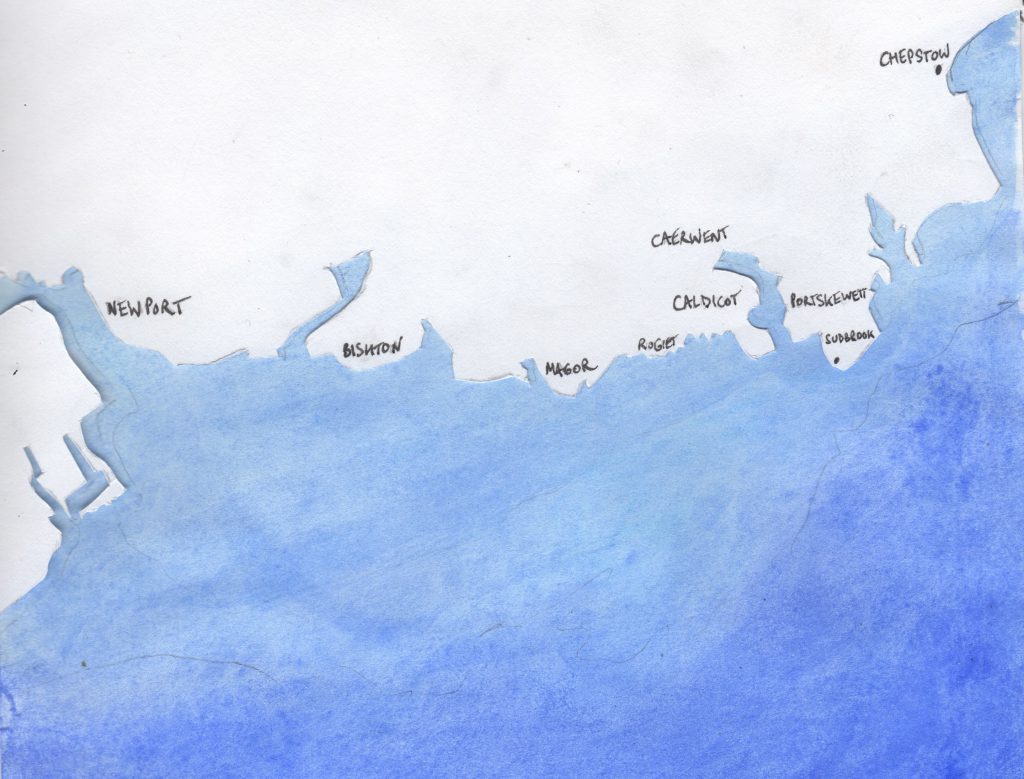 CHEPSTOW
CAERWENT
NEWPORT
CALDICOT
PORTSKEWETT
BISHTON
ROGIET
SUDBROOK
MAGOR